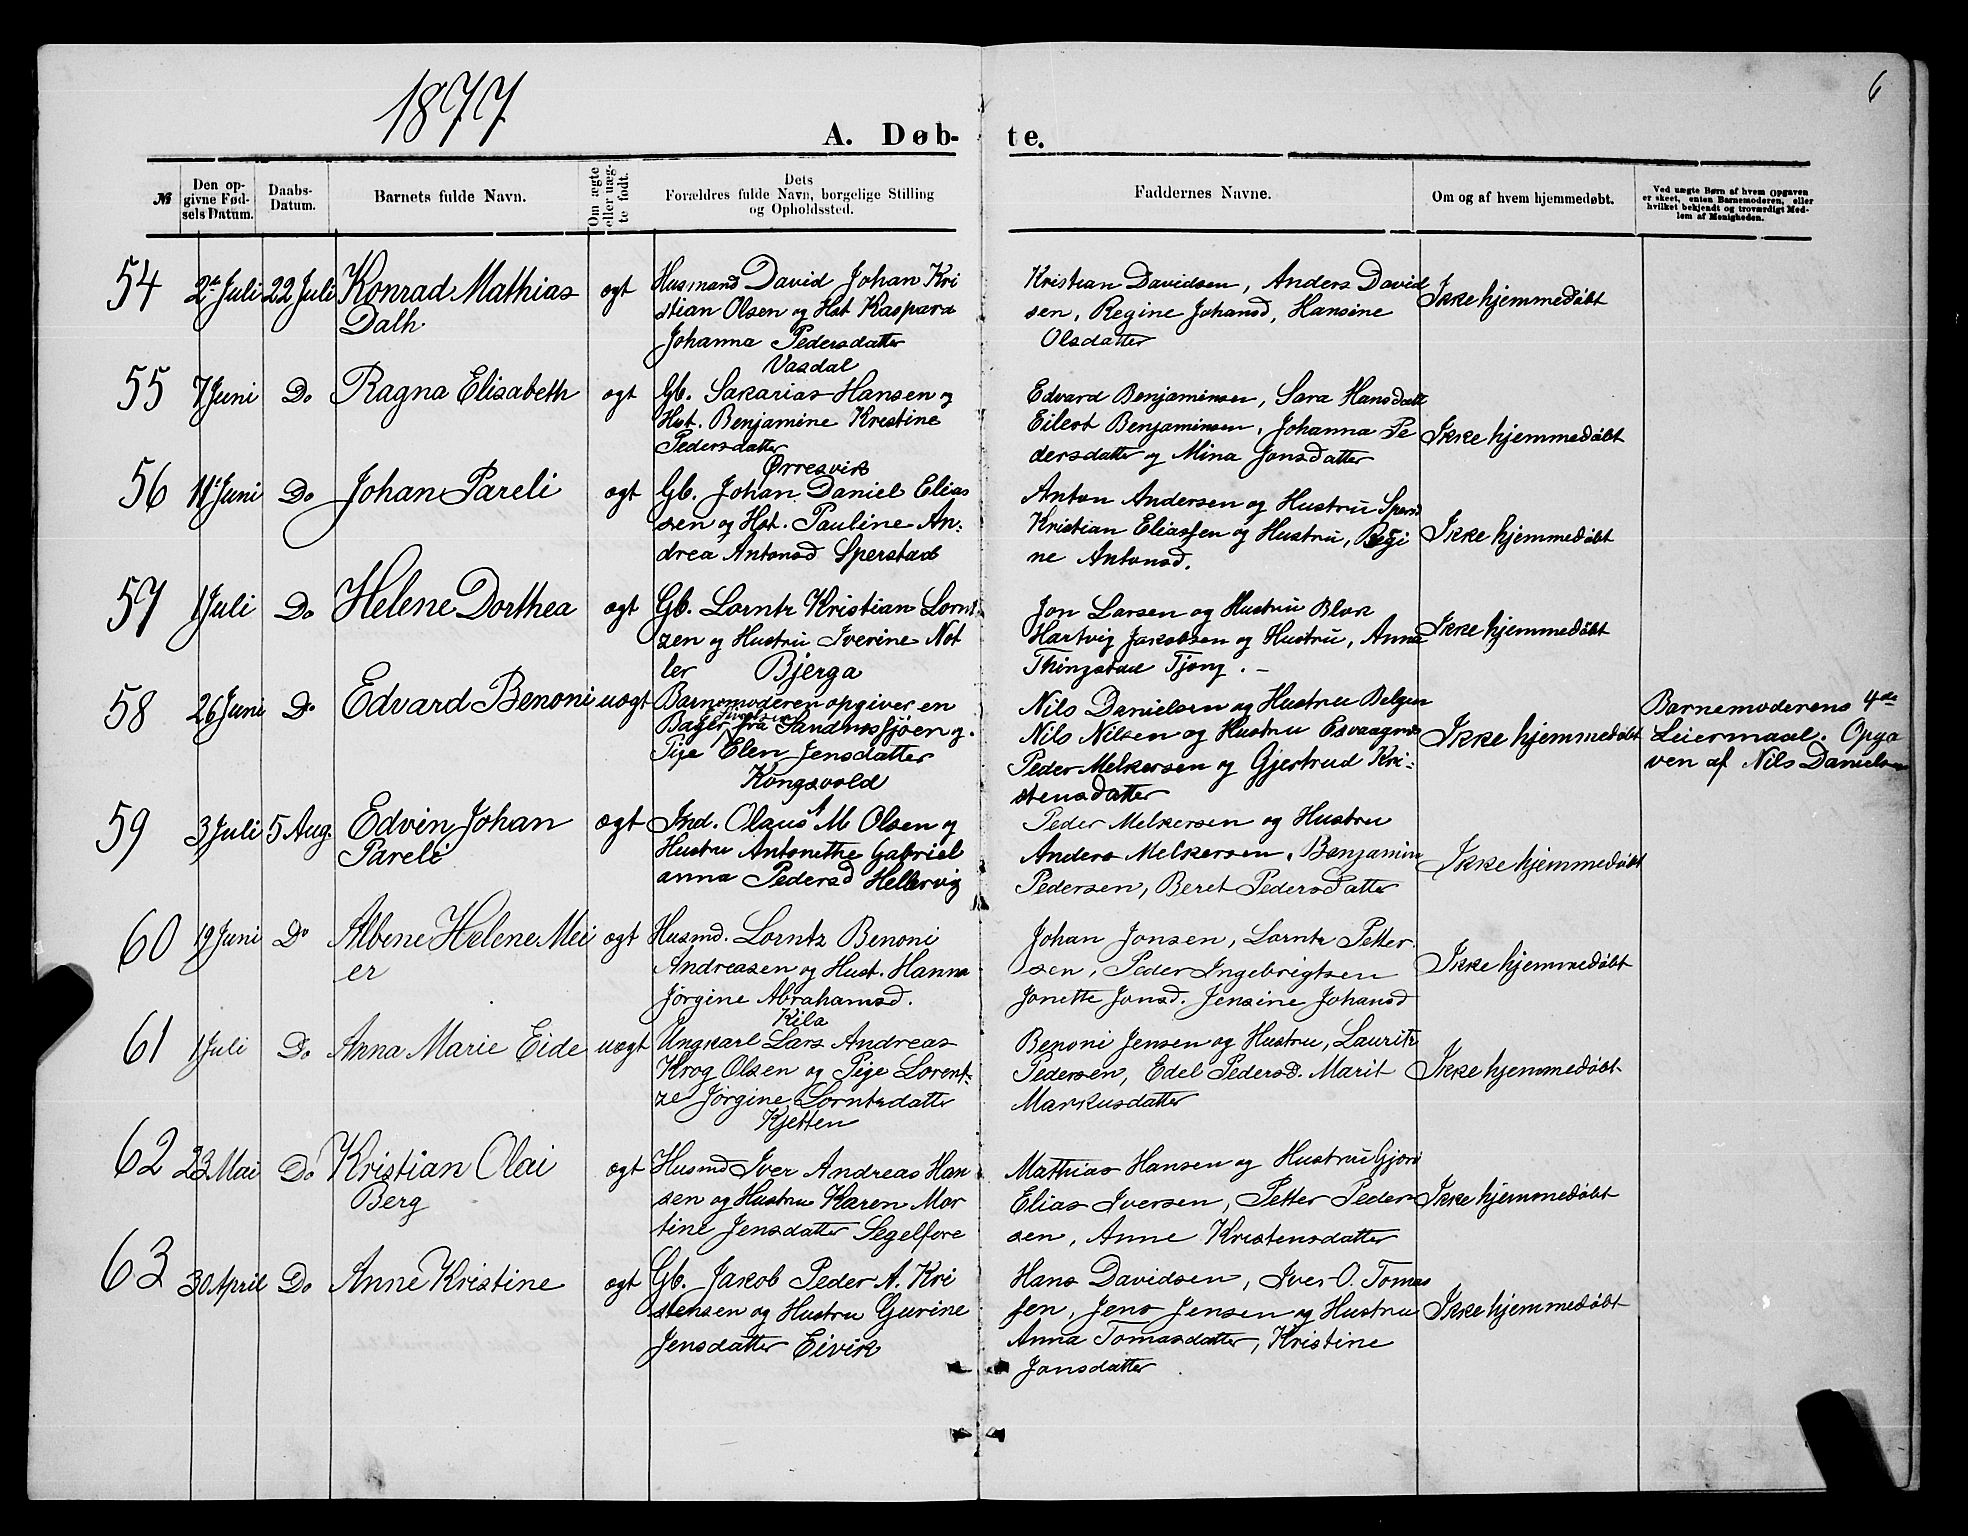 1877
6
A. Døbte.
№
Den opgivne Fødsels Datum.
Daabs-Datum.
Barnets fulde Navn.
Om ægte eller uægte født.
Dets Forældres fulde Navn, borgelige Stilling og Opholdssted.
Faddernes Navne.
Om og af hvem hjemmedøbt.
Ved uægte Børn af hvem Opgaven er skeet, enten Barnemoderen, eller hvilket bekjendt og troværdigt Medlem af Menigheden.
54 2de Juli 22 Juli Konrad Mathias
Dalh.
ægt
Husmand David Johan Kri
stian Olsen og Hst Kaspara
Johanna Pedersdatter
Vasdal
Kristian Davidsen, Anders David
sen, Regine Johansd, Hansine
Olsdatter
Ikke hjemmedøbt
55 7 Juni Do Ragna Elisabeth
ægt
Gb. Sakarias Hansen og
Hst. Benjamine Kristine
Pedersdatter
Ørresvik
Edvard Benjaminsen, Sara Hansdatt
Eilert Benjaminsen, Johanna Pe
dersdatter og Mina Jonsdatter
Ikke hjemmedøbt
56 11 Juni Do Johan Pareli
ægt
Gb. Johan Daniel Elias
sen og Hst. Pauline An-
drea Antonsd Sperstad
Anton Andersen og Hustru
Kristian Eliassen og Hustru, Regi
ne Antonsd.
Ikke hjemmedøbt
57 1 Juli Do Helene Dorthea
ægt
Gb. Lorntz Kristian Lornt
zen og Hustru Iverine Not
ler Bjerga
Jon Larsen og Hustru
Hartvig Jakobsen og Hustru, Anna
Thingstad Tjong. –
Ikke hjemmedøbt
58 26 Juni Do Edvard Benoni
uægt
Barnemoderen opgiver en
Bager fra Sandnessjøen og
Pige Elen Jensdatter
Kongsvold
Nils Danielsen og Hustru
Nils Nilsen og Hustru
Peder Melkersen og Gjertrud Kri-
stensdatter
Ikke hjemmedøbt
Barnemoderens 4de
Leiermaal. Opga
ven af Nils Danielsen
59 3 Juli 5 Aug. Edvin Johan
Pareli
ægt
Ind. Olaus A M Olsen og
Hustru Antonethe Gabriel
anna Pedersd Hellervig
Peder Melkersen og Hustru
Anders Melkersen, Benjamin
Pedersen, Beret Pedersdatter
Ikke hjemmedøbt
60 19 Juni Do Albene Helene Mei
er
ægt
Husmd. Lorntz Benoni
Andreasen og Hust. Hanna
Jørgine Abrahamsd.
Kila
Johan Jonsen, Lorntz Petter
sen, Peder Ingebrigtsen
Jonette Jonsd. Jensine Johansd
Ikke hjemmedøbt
61 1 Juli Do Anna Marie Eide
uægt
Ungkarl Lars Andreas
Krog Olsen og Pige Lorent-
ze Jørgine Lorntzdatter
Kjetten
Benoni Jensen og Hustru, Lauritz
Pedersen, Edel Pedersd. Marit
Markusdatter
Ikke hjemmedøbt
62 23 Mai Do Kristian Olai
Berg
ægt
Husmd Iver Andreas Han
sen og Hustru Karen Mar
tine Jensdatter Segelfore
Mathias Hansen og Hustru
Elias Iversen, Petter Peder
sen, Anne Kristensdatter
Ikke hjemmedøbt
63 30 April Do Anne Kristine
ægt
Gb. Jakob Peder A. Kri
stensen og Hustru Gurine
Jensdatter Eivik
Hans Davidsen, Iver O. Tomas
sen, Jens Jensen og Hustru
Anna Tomasdatter, Kristine
Jonsdatter
Ikke hjemmedøbt